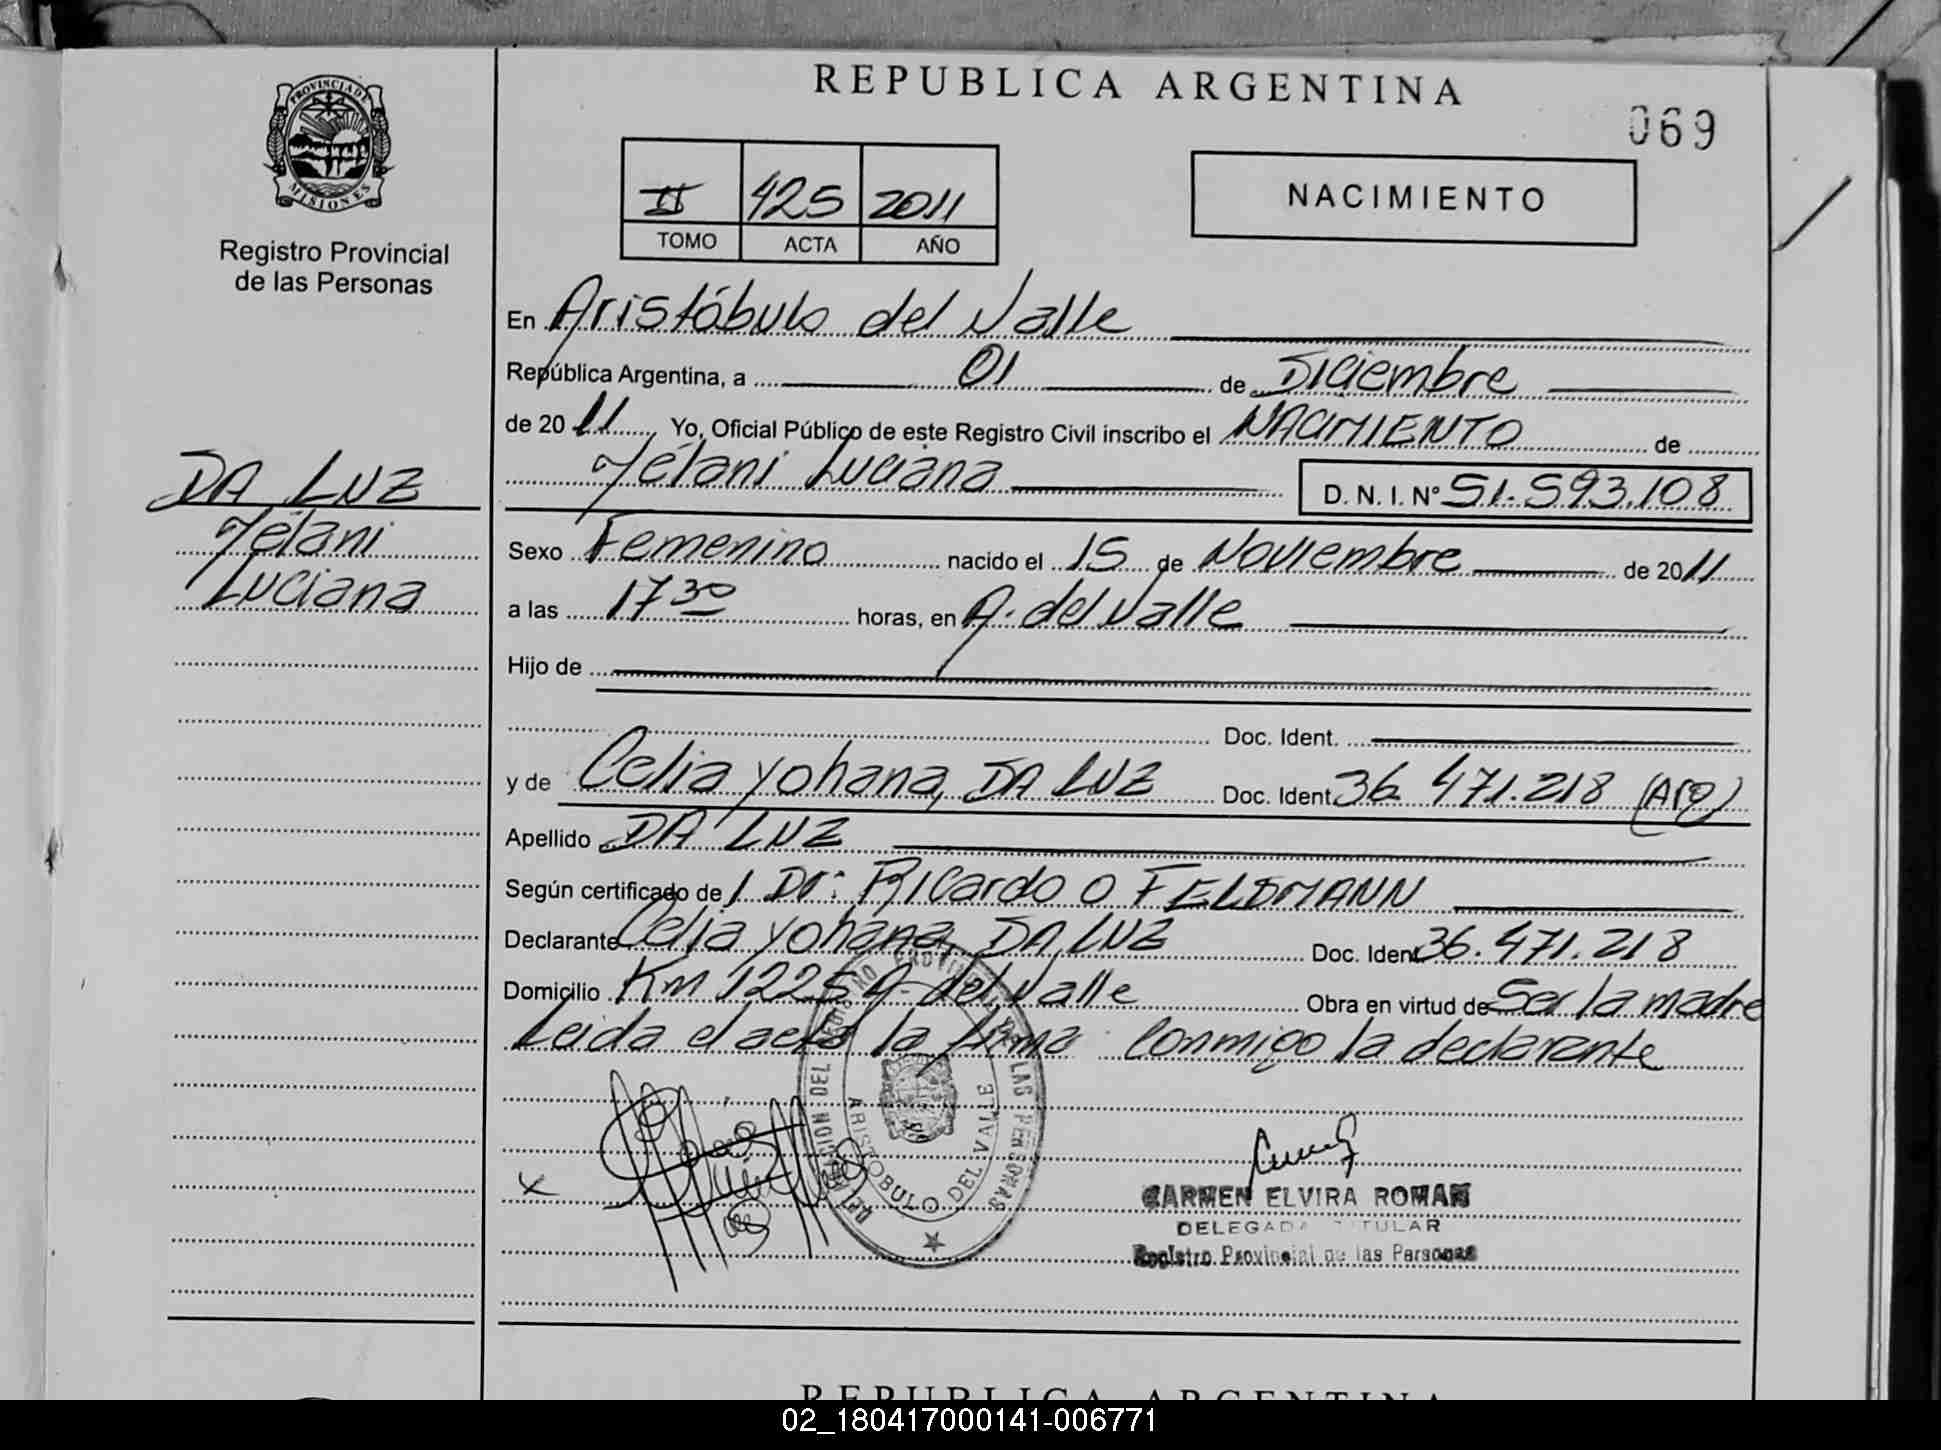 REPUBLICA ARGENTINA
069
PROVINCIA DE MISIONES
Registro Provincial
de las Personas
II 425 2011
TOMO ACTA AÑO
NACIMIENTO
En Aristóbulo del Valle
República Argentina, a 01 de Diciembre
de 2011 Yo, Oficial Público de este Registro Civil inscribo el NACIMIENTO de
Yélani Luciana D. N. I. Nº 51.593.108
DA LUZ
Yélani
Luciana
Sexo Femenino nacido el 15 de Noviembre de 2011
a las 17 30 horas, en A. del Valle
Hijo de
Doc. Ident.
y de Celia Yohana, DA LUZ Doc. Ident. 36.471.218 (Arg)
Apellido DA LUZ
Según certificado de l Dr: Ricardo O FELDMANN
Declarante Celia Yohana, DA LUZ Doc. Ident. 36.471.218
Domicilio Km 1225 A. del Valle Obra en virtud de Ser la madre
Leida el acta la firma conmigo la declarante
ARISTOBULO DEL VALLE
x
CARMEN ELVIRA ROMAN
DELEGADA TITULAR
Registro Provincial de las Personas
REPUBLICA ARGENTINA
02_180417000141-006771